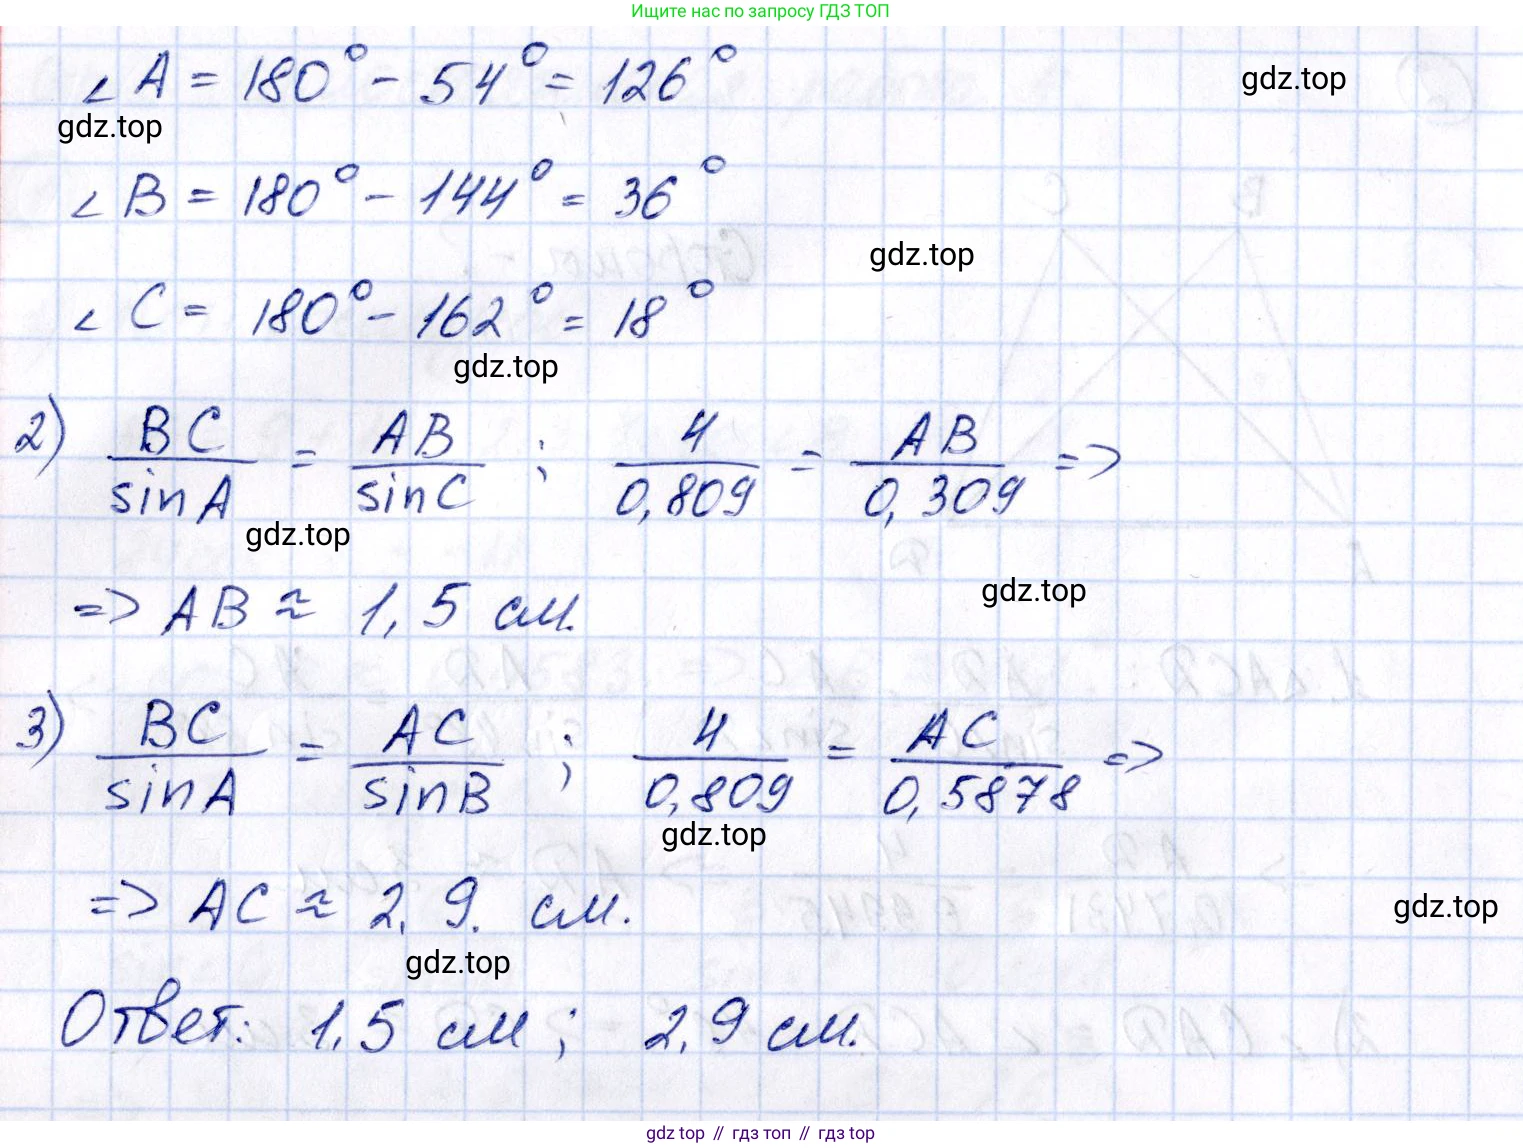 Ищите нас по запросу ГДЗ ТОП
∠A = 180° - 54° = 126°
gdz.top
gdz.top
∠B = 180° - 144° = 36°
gdz.top
∠C = 180° - 162° = 18°
gdz.top
2) BC/sinA = AB/sinC ; 4/0,809 = AB/0,309 =>
gdz.top
=> AB ≈ 1,5 см.
gdz.top
3) BC/sinA = AC/sinB ; 4/0,809 = AC/0,5878 =>
gdz.top
=> AC ≈ 2,9. см.
gdz.top
gdz.top
Ответ: 1,5 см ; 2,9 см.
gdz.top // гдз топ // гдз top